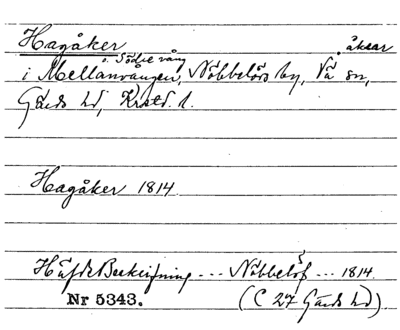 Hagåker åkrar
o. Södre vång
i Mellanvången, Nöbbelövs by, Vä sn,
Gärds hd, Krstd. l.
Hagåker 1814
Häfde Beskrifning --- Nöbbelöf --- 1814.
Nr 5343. (C 27 Gärds hd)